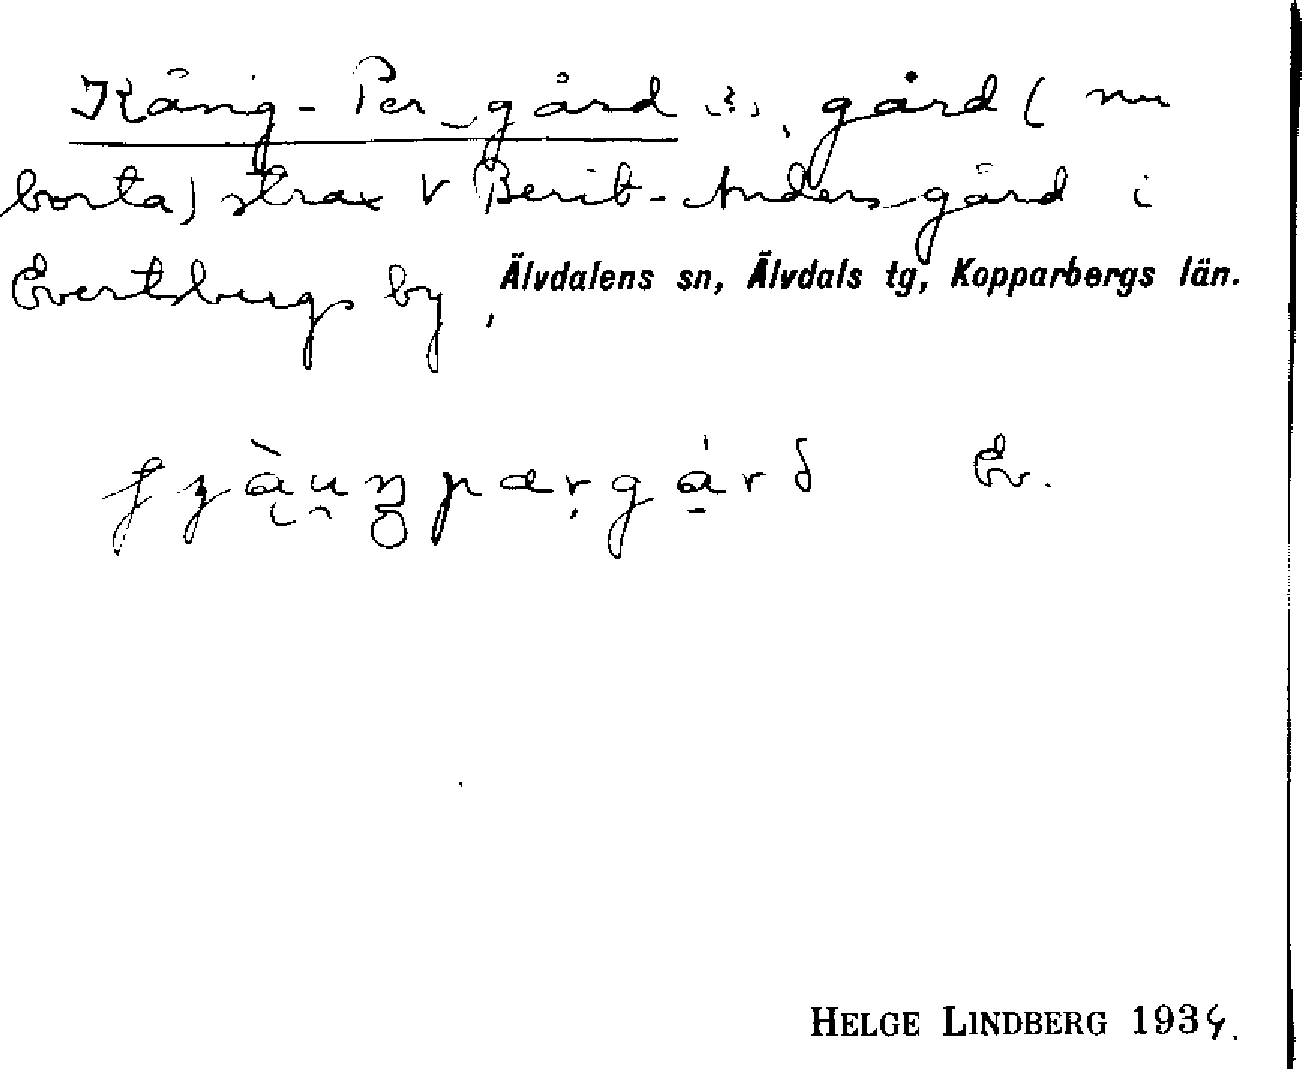 Kång-Per-gård (?), gård (nu
borta) strax V Berit-Anders-gård i
Evertsbergs by, Älvdalens sn, Älvdals tg, Kopparbergs län.
Ev.
HELGE LINDBERG 1934.